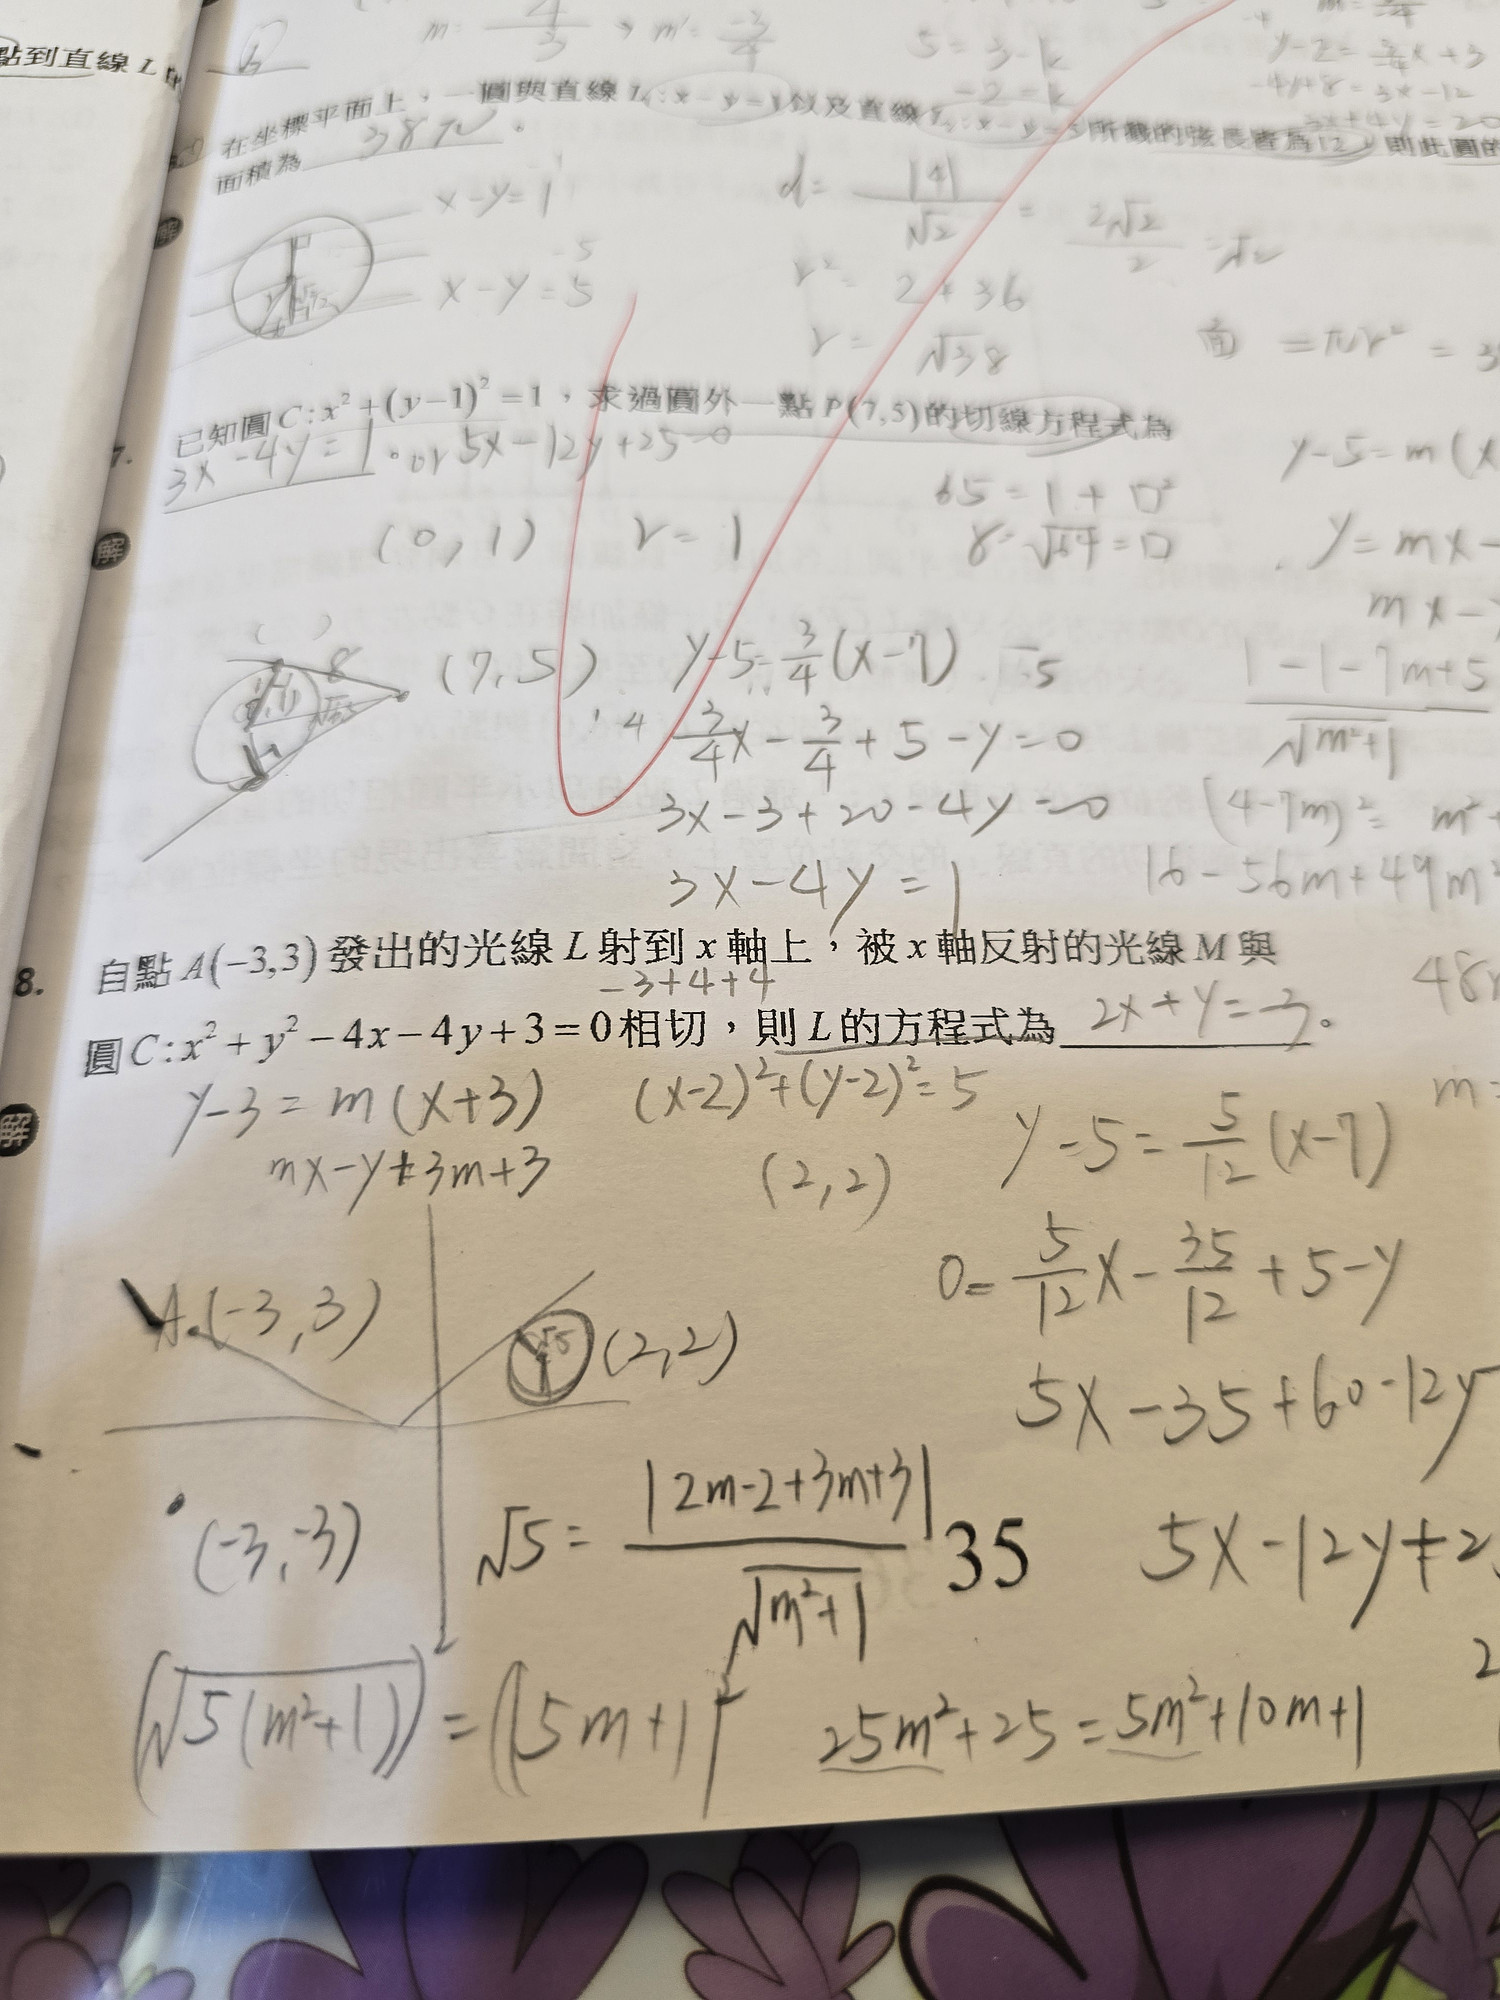 點到直線 L
m = 4/3 , m' = -3/4
5 = 3-k
-2 = k
y-2 = x+3
-4y+8 = 3x-12
3x+4y = 20
在坐標平面上，一圓與直線 L₁: x-y=1 以及直線 : x-y=5 所截的弦長皆為12，則此圓的
面積為 38π 。
x-y=1
x-y=5
-5
d = |4|/√2 = 2√2/2 = √2
r² = 2+36
r = √38
面 = πr² = 3
7. 已知圓 C: x²+(y-1)²=1，求過圓外一點 P(7,5) 的切線方程式為
3x-4y=1 。or 5x-12y+25=0
(0,1) r=1
65 = 1+□²
8=√64=□
y-5=m(x
y=mx-
mx-
解
8
(7,5)
y-5=3/4(x-7)
3/4x-3/4+5-y=0
|-1-7m+5
√m²+1
3x-3+20-4y=0
(4-7m)²= m²+
3x-4y=1
16-56m+49m²
8. 自點 A(-3,3) 發出的光線 L 射到 x 軸上，被 x 軸反射的光線 M 與
-3+4+4
圓 C: x²+y²-4x-4y+3=0 相切，則 L 的方程式為 2x+y=-3。
48
y-3=m(x+3)
(x-2)²+(y-2)²=5
m=
解
mx-y+3m+3
(2,2)
y-5=5/12(x-7)
A.(-3,3)
√5
(2,2)
0=5/12x-35/12+5-y
5x-35+60-12y
(-3,-3)
√5=|2m-2+3m+3|/√m²+1
35
5x-12y+2
(√5(m²+1))²=(5m+1)²
25m²+25=5m²+10m+1